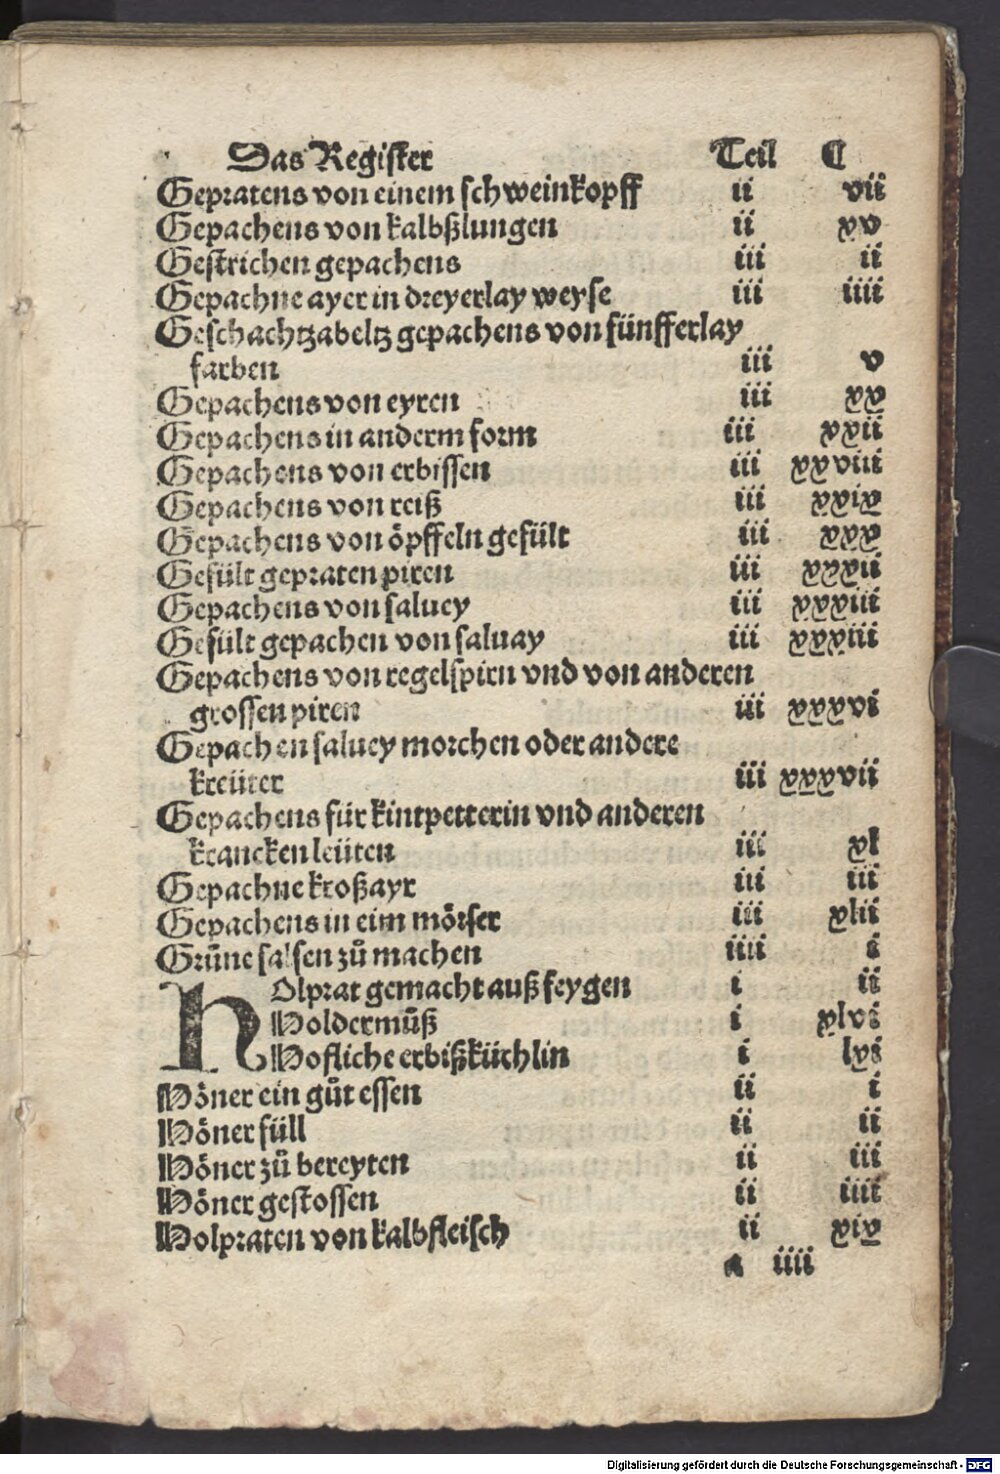 Das Register Teil C
Gepratens von einem schweinkopff ii vii
Gepachens von kalbßlungen ii xv
Gestrichen gepachens iii ii
Gepachne ayer in dreyerlay weyse iii iiii
Geschachtzabeltz gepachens von fünfferlay
farben iii v
Gepachens von eyren iii xx
Gepachens in anderm form iii xxii
Gepachens von erbissen iii xxviii
Gepachens von reiß iii xxix
Gepachens von öpffeln gefült iii xxx
Gefült gepraten piren iii xxxii
Gepachens von saluey iii xxxiii
Gefült gepachen von saluay iii xxxiii
Gepachens von regelspirn vnd von anderen
grossen piren iii xxxvi
Gepachen saluey morchen oder andere
kreüter iii xxxvii
Gepachens für kintpetterin vnd anderen
krancken leüten iii xl
Gepachne kroßayr iii iii
Gepachens in eim mörser iii xlii
Grüne salsen zů machen iiii i
HOlprat gemacht auß feygen i ii
Holdermůß i xlvi
Hofliche erbißküchlin i lvi
Höner ein gůt essen ii i
Höner füll ii ii
Höner zů bereyten ii iii
Höner gestossen ii iiii
Holpraten von kalbfleisch ii xix
a iiii
Digitalisierung gefördert durch die Deutsche Forschungsgemeinschaft - DFG